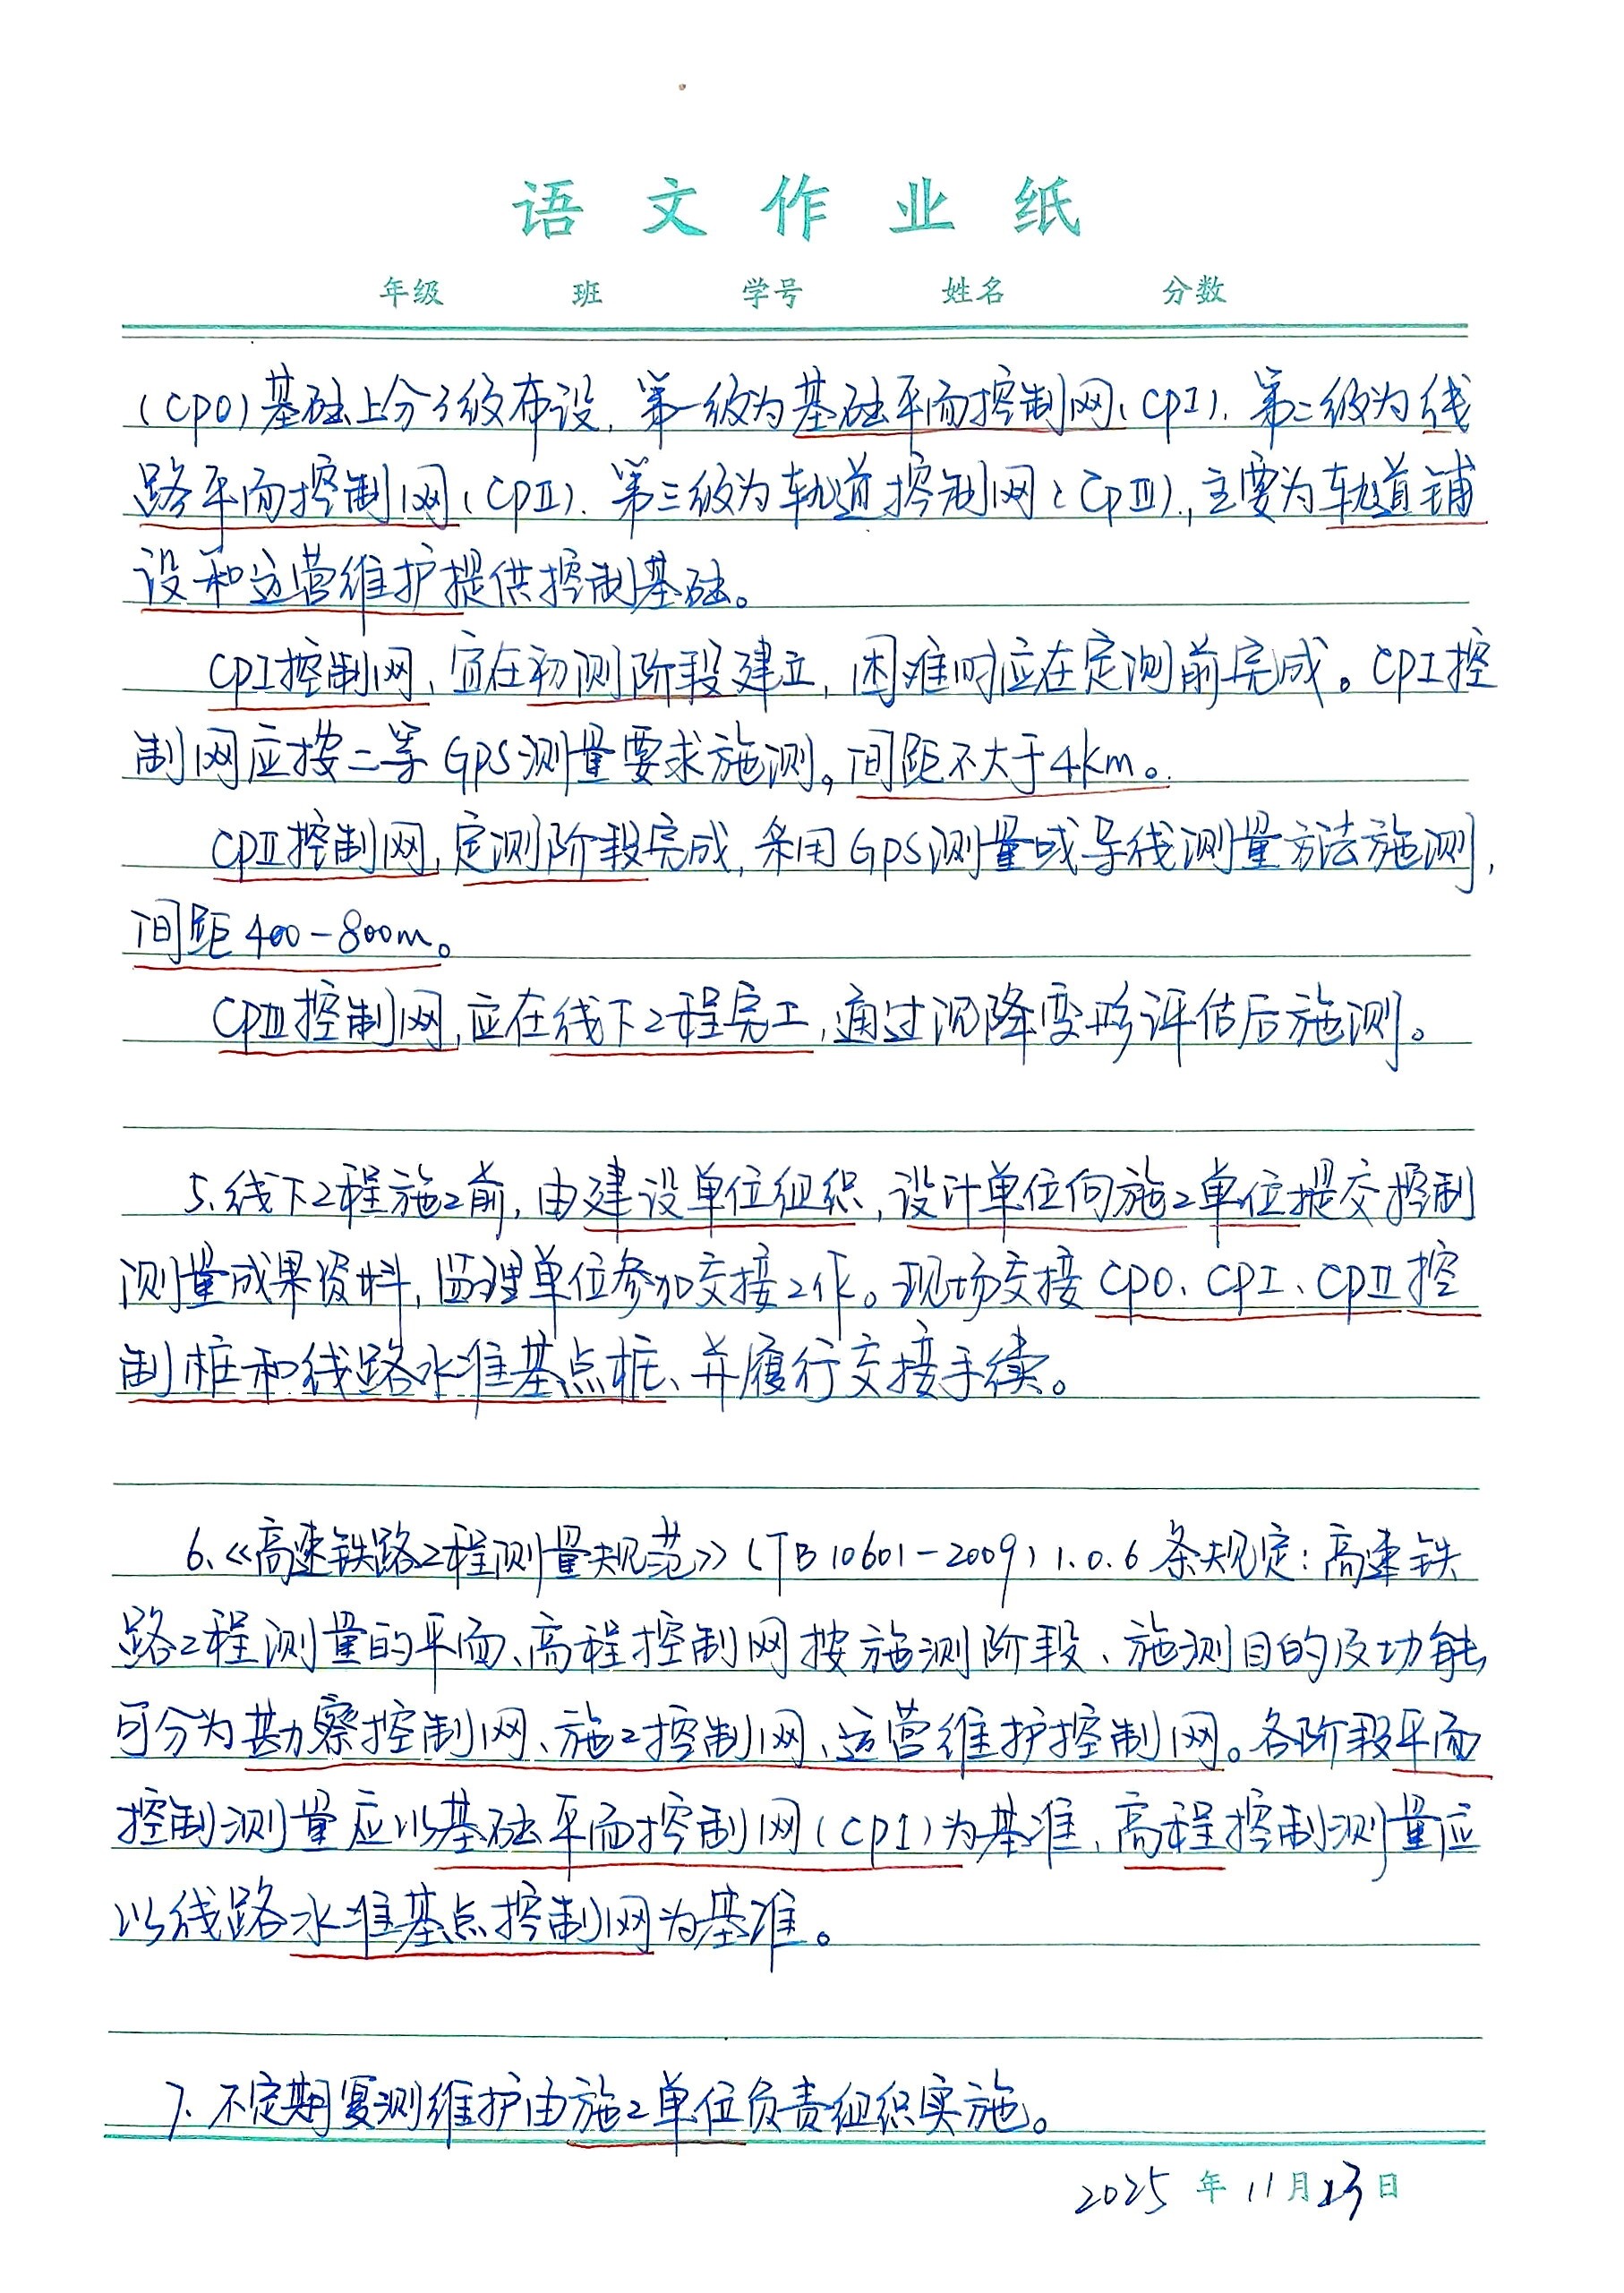 语文作业纸
年级 班 学号 姓名 分数
(CP0)基础上分3级布设,第一级为基础平面控制网(CPI).第二级为线
路平面控制网(CPⅡ).第三级为轨道控制网(CPⅢ),主要为轨道铺
设和运营维护提供控制基础。
CPI控制网,宜在初测阶段建立,困难时应在定测前完成。CPI控
制网应按二等GPS测量要求施测。间距不大于4km。
CPⅡ控制网,定测阶段完成,采用GPS测量或导线测量方法施测,
间距400-800m。
CPⅢ控制网,应在线下工程完工,通过沉降变形评估后施测。
5、线下工程施工前,由建设单位组织,设计单位向施工单位提交控制
测量成果资料,监理单位参加交接工作。现场交接CP0、CPI、CPⅡ控
制桩和线路水准基点桩、并履行交接手续。
6、《高速铁路工程测量规范》(TB10601-2009)1.0.6条规定:高速铁
路工程测量的平面、高程控制网按施测阶段、施测目的及功能
可分为勘察控制网、施工控制网、运营维护控制网。各阶段平面
控制测量应以基础平面控制网(CPI)为基准、高程控制测量应
以线路水准基点控制网为基准。
7、不定期复测维护由施工单位负责组织实施。
2025年11月23日